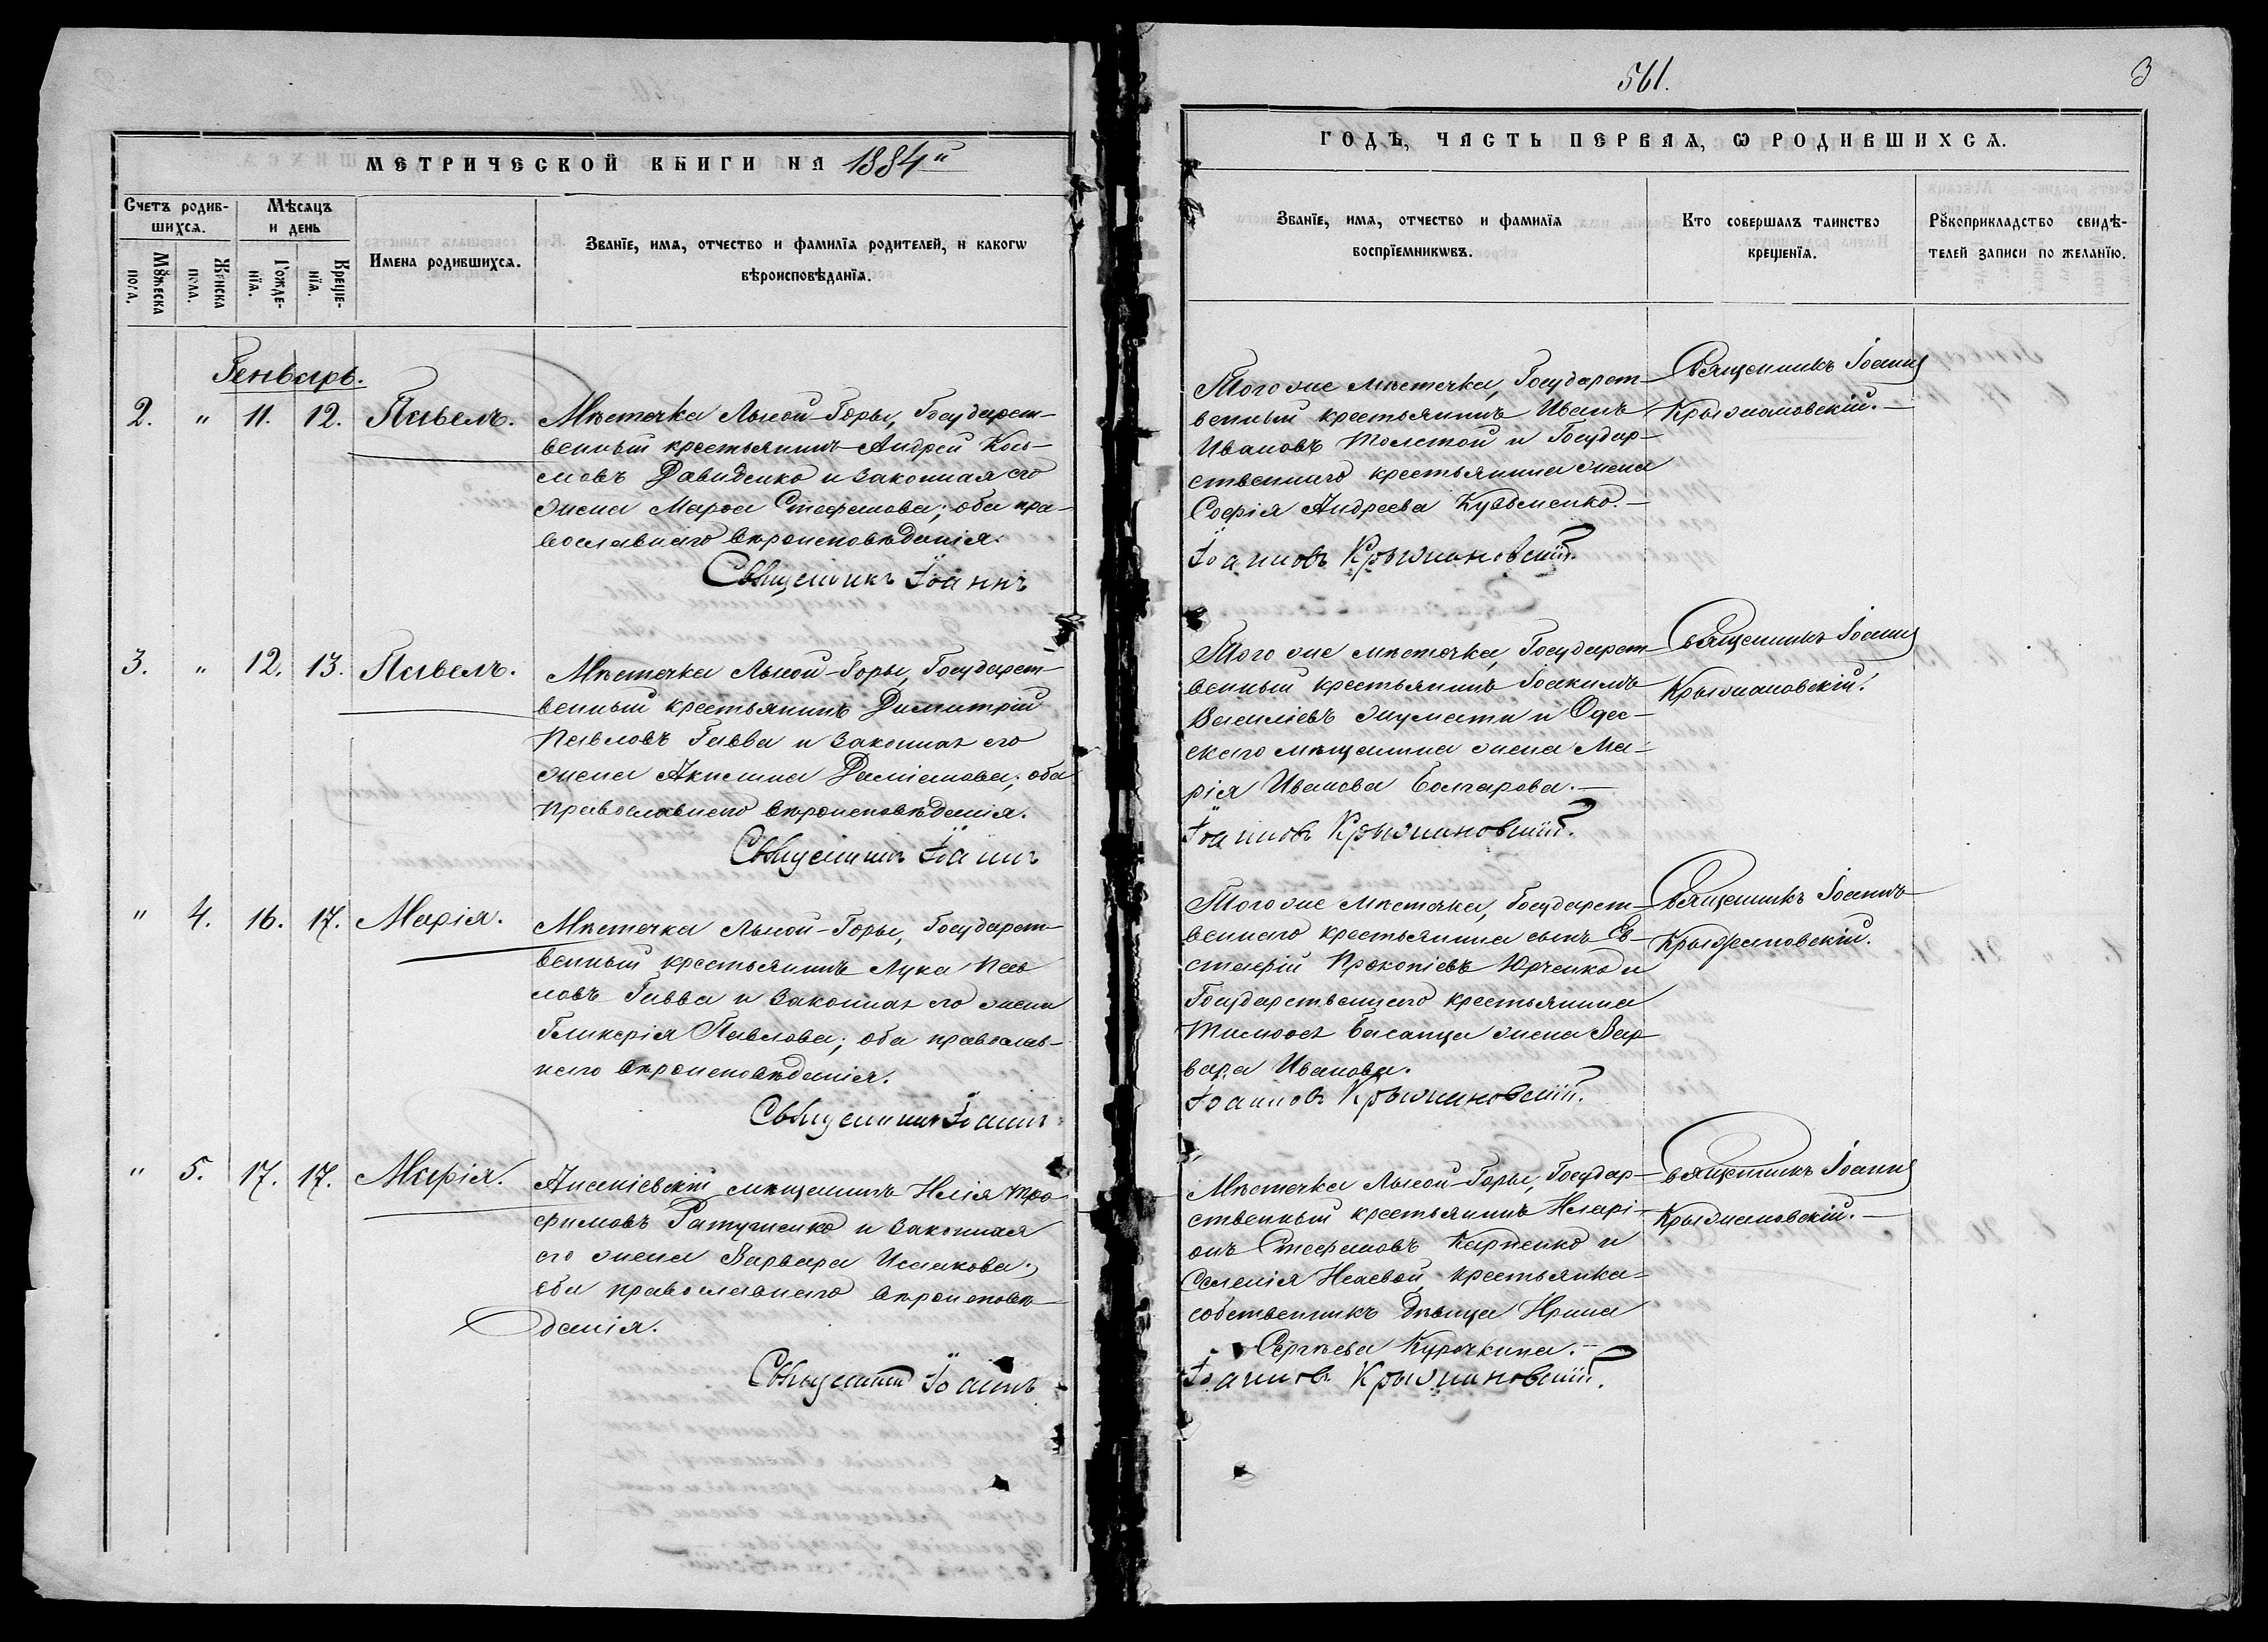 561.
3
МЕТРИЧЕСКОЙ КНИГИ НА 1884й
ГОДЪ, ЧАСТЬ ПЕРВАЯ, Ѡ РОДИВШИХСѦ.
Счетъ родив-
шихсѧ.
Мꙋжеска
пола.
Женска
пола.
Мѣсѧцъ
и день
Рожде-
нїѧ.
Креще-
нїѧ.
Имена родившихсѧ.
Званїе, имѧ, отчество и фамилїѧ родителей, и какогѡ
вѣроисповѣданїѧ.
Званїе, имѧ, отчество и фамилїѧ
воспрїемникѡвъ.
Кто совершалъ таинство
крещенїѧ.
Рꙋкоприкладство свидѣ-
телей записи по желанїю.
Генварь.
2. " 11. 12. Павелъ.
Мѣстечка Лысой-Горы, Государст-
венный крестьянинъ Андрей Кось-
мовъ Давиденко и законная его
жена Марѳа Стефанова; оба пра-
вославнаго вѣроисповѣданія.
Священникъ Іоаннъ
Того же мѣстечка, Государст-
венный крестьянинъ Иванъ
Ивановъ Толстой и Государ-
ственнаго крестьянина жена
Софія Андреева Кузьменко.-
Іоанновъ Крыжановскій.
Священникъ Іоаннъ
Крыжановскій.-
3. " 12. 13. Павелъ.
Мѣстечка Лысой-Горы, Государст-
венный крестьянинъ Димитрій
Павловъ Гавва и законная его
жена Акилина Даміанова; оба
православнаго вѣроисповѣданія.
Священникъ Іоаннъ
Того же мѣстечка, Государст-
венный крестьянинъ Іоакимъ
Василіевъ и Одес-
скаго мѣщанина жена Ма-
рія Иванова Болгарова.-
Іоанновъ Крыжановскій.
Священникъ Іоаннъ
Крыжановскій.
" 4. 16. 17. Марія.
Мѣстечка Лысой-Горы, Государст-
венный крестьянинъ Лука Пав-
ловъ Гавва и законная его жена
Гликерія Павлова; оба православ-
наго вѣроисповѣданія.
Священникъ Іоаннъ
Того же мѣстечка, Государст-
веннаго крестьянина сынъ Ев-
стафій Прокопіевъ Юрченко и
Государственнаго крестьянина
Тимоѳея жена Вар-
вара Иванова.
Іоанновъ Крыжановскій.
Священникъ Іоаннъ
Крыжановскій.
" 5. 17. 17. Марія.
Ананіевскій мѣщанинъ Илія Тро-
фимовъ Ратушенко и законная
его жена Варвара Исаакова;
оба православнаго вѣроисповѣ-
данія.
Священникъ Іоаннъ
Мѣстечка Лысой-Горы, Государ-
ственный крестьянинъ Иларі-
онъ Стефановъ Карпенко и
Селенія крестьянка-
собственникъ дѣвица Ирина
Сергѣева Курочкина.-
Іоанновъ Крыжановскій.
Священникъ Іоаннъ
Крыжановскій.-